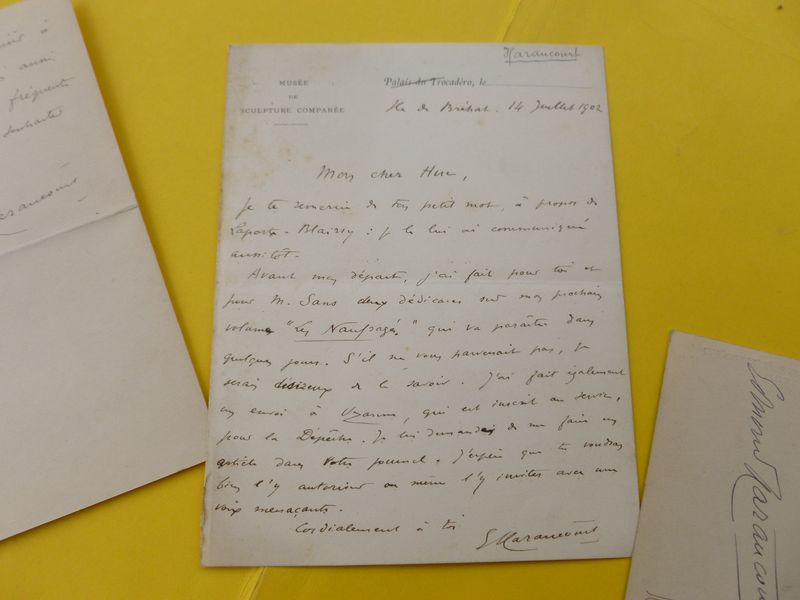 uit à
s aussi
fréquente
souhaiter
Haraucourt
Haraucourt
MUSÉE
DE
SCULPTURE COMPARÉE
Palais du Trocadéro, le
Ile de Bréhat. 14 Juillet 1902
Mon cher Huc,
Je te remercie de ton petit mot, à propos de
Laporte-Blairsy : je le lui ai communiqué
aussitôt.
Avant mon départ, j'ai fait pour toi et
pour M. Sans deux dédicaces sur mon prochain
volume "Les Naufragés" qui va paraître dans
quelques jours. S'il ne vous parvenait pas, je
serais désireux de le savoir. J'ai fait également
un envoi à Uzanne, qui est inscrit au service,
pour la Dépêche. Je lui demande de me faire un
article dans votre journal. J'espère que tu voudras
bien l'y autoriser ou même l'y inviter avec une
voix menaçante.
Cordialement à toi
E Haraucourt
Edmond Haraucourt